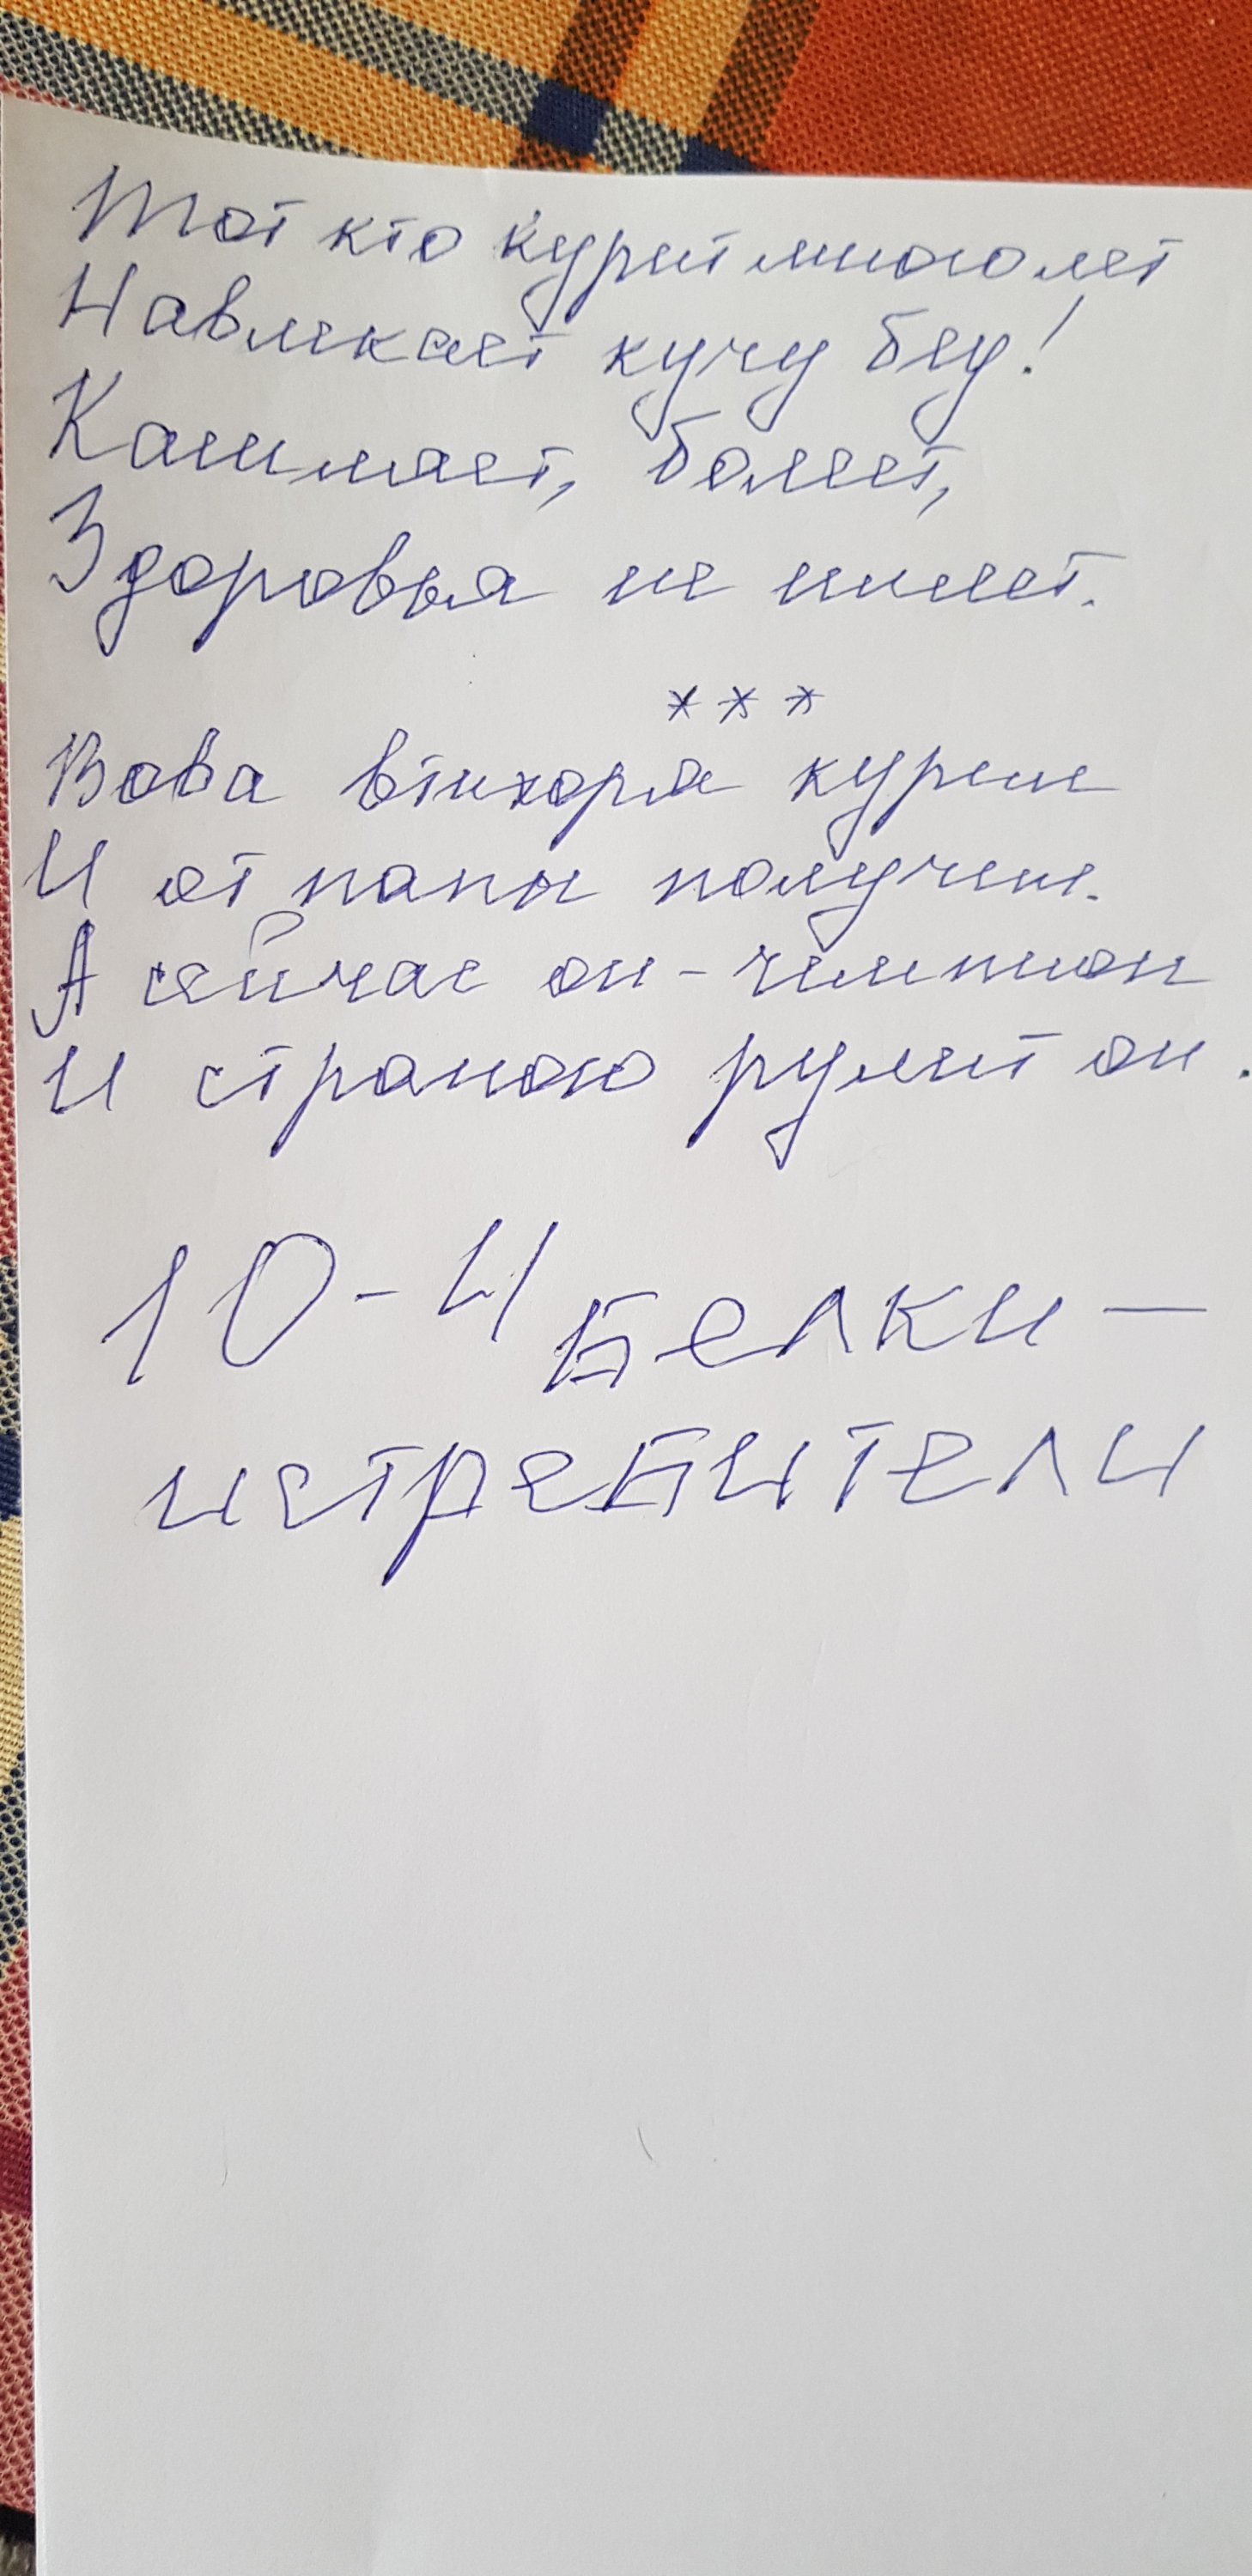 Тот кто курит много лет
Навлекает кучу бед!
Кашляет, болеет,
Здоровья не имеет.
***
Вова втихоря курил
И от папы получил.
А сейчас он - чемпион
И страною рулит он.
10-И Белки —
истребители